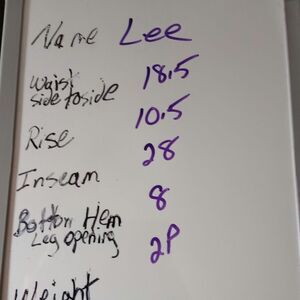 Name Lee
Waist 18.5
side to side
Rise 10.5
Inseam 28
Bottom Hem 8
Leg opening
2P
Weight